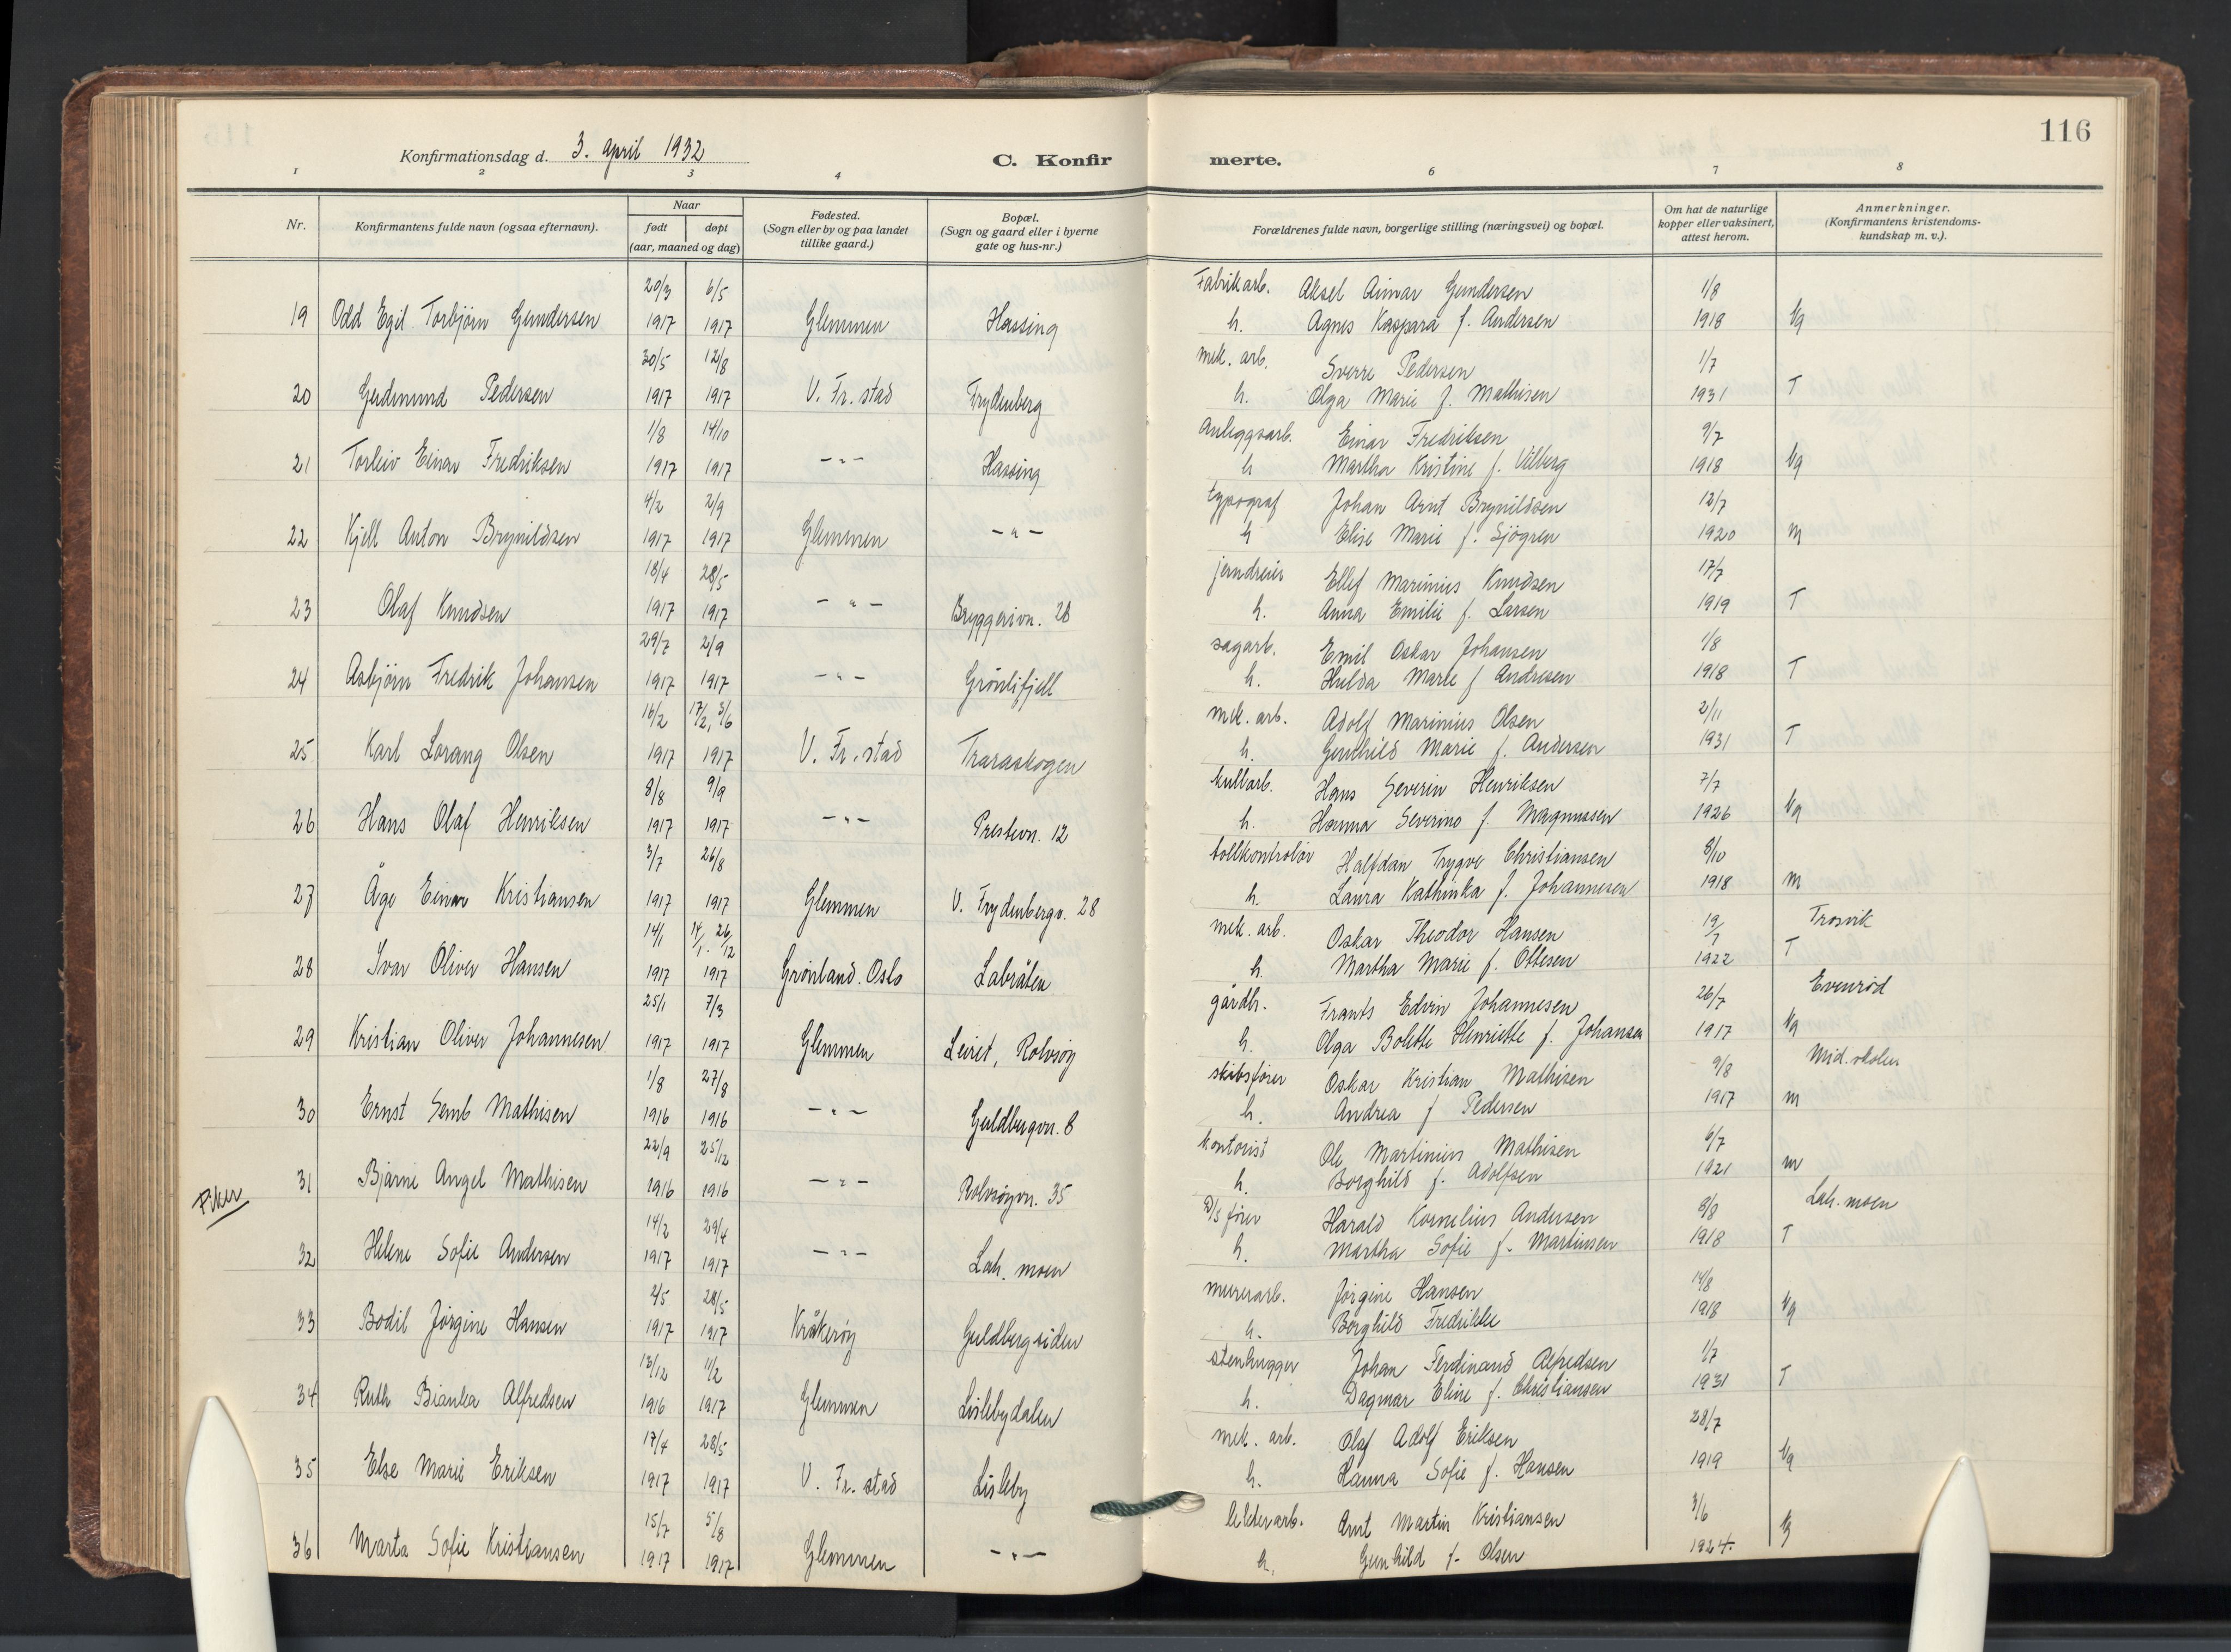 116
Konfirmationsdag d. 3. April 1932
C. Konfirmerte.
1 2 3 4 6 7 8
Nr.
Konfirmantens fulde navn (ogsaa efternavn).
Naar
født døpt
(aar, maaned og dag)
Fødested.
(Sogn eller by og paa landet
tillike gaard.)
Bopæl.
(Sogn og gaard eller i byerne
gate og hus-nr.)
Forældrenes fulde navn, borgerlige stilling (næringsvei) og bopæl.
Om hat de naturlige
kopper eller vaksinert,
attest herom.
Anmerkninger.
(Konfirmantens kristendoms-
kundskap m. v.).
20/3 6/5 Fabrikarb. Aksel Aimar Gundersen 1/8
19 Odd Egil Torbjörn Gundersen 1917 1917 Glemmen Hassing h. Agnes Kaspara f. Andersen 1918 Vg
30/5 12/8 mek. arb. Sverre Pedersen 1/7
20 Gudmund Pedersen 1917 1917 V. Fr. stad Frydenberg h. Olga Marie f. Mathisen 1931 T
1/8 14/10 Anleggsarb. Einar Fredriksen 9/7
21 Torleiv Einar Fredriksen 1917 1917 -"- Hassing h Martha Kristine f. Vilberg 1918 Vg
4/2 2/9 typograf Johan Arnt Brynildsen 12/7
22 Kjell Anton Brynildsen 1917 1917 Glemmen -"- h Elise Marie f. Sjögren 1920 m
18/4 28/5 jerndreier Ellef Marinius Knudsen 17/7
23 Olaf Knudsen 1917 1917 -"- Bryggerivn. 28 h. Anna Emilie f. Larsen 1919 T
29/7 2/9 sagarb. Emil Oskar Johansen 1/8
24 Asbjörn Fredrik Johansen 1917 1917 -"- Grönlifjell h. Hulda Marie f Andresen 1918 T
16/2 17/2, 3/6 mek. arb. Adolf Marinius Olsen 2/11
25 Karl Lorang Olsen 1917 1917 V. Fr. stad Traraskogen h. Gunhild Marie f. Andersen 1931 T
8/8 9/9 kullarb. Hans Severin Henriksen 7/7
26 Hans Olaf Henriksen 1917 1917 -"- Prestevn. 12 h. Hanna Severine f. Magnussen 1926 Vg
3/7 26/8 tollkontrolör Halfdan Trygve Christiansen 8/10
27 Åge Einar Kristiansen 1917 1917 Glemmen V. Frydenbergv. 28 h. Laura Kathinka f. Johannesen 1918 m
14/1 14/1. 26/12 mek. arb. Oskar Theodor Hansen 19/7 Trosvik
28 Ivar Oliver Hansen 1917 1917 Grönland. Oslo Labråten h. Martha Marie f. Ottesen 1922 T
25/1 7/3 gårdb. Frants Edvin Johannesen 26/7 Evenröd
29 Kristian Oliver Johannesen 1917 1917 Glemmen Leiret, Rolvsöy h. Olga Bolette Henriette f. Johansen 1917 Vg
1/8 27/8 skibsförer Oskar Kristian Mathisen 9/8 Mid. skolen
30 Ernst Semb Mathisen 1916 1916 -"- Guldbergvn. 8 h. Andrea f Pedersen 1917 m
22/9 25/12 kontorist Ole Martinius Mathisen 6/7
31 Bjarne Angel Mathisen 1916 1916 -"- Rolvsöyvn. 35 h. Borghild f. Adolfsen 1921 m
Piker
14/2 29/4 D/S förer Harald Kornelius Andersen 8/8 Lah. moen
32 Helene Sofie Andersen 1917 1917 -"- Lah. moen h. Martha Sofie f. Martinsen 1918 T
2/5 28/5 murerarb. Jörgine Hansen 14/8
33 Bodil Jörgine Hansen 1917 1917 Kråkeröy Guldbergsiden h. Borghild Fredrikke 1918 Vg
13/12 11/2 stenhugger Johan Ferdinand Alfredsen 1/7
34 Ruth Bianka Alfredsen 1916 1917 Glemmen Lislebydalen h. Dagmar Eline f. Christiansen 1931 T
17/4 28/5 mek. arb. Olaf Adolf Eriksen 28/7
35 Else Marie Eriksen 1917 1917 V. Fr. stad Lisleby h. Hanna Sofie f. Hansen 1919 Vg
15/7 5/8 Arnt Martin Kristiansen 3/6
36 Marta Sofie Kristiansen 1917 1917 Glemmen -"- h. Gunhild f. Olsen 1924.